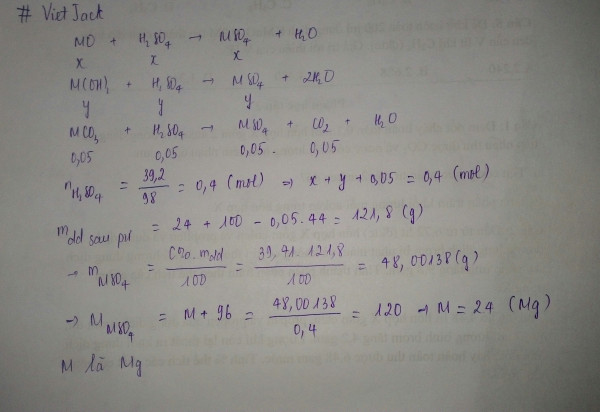 # VietJack
MO + H₂SO₄ → MSO₄ + H₂O
x x x
M(OH)₂ + H₂SO₄ → MSO₄ + 2H₂O
y y y
MCO₃ + H₂SO₄ → MSO₄ + CO₂ + H₂O
0,05 0,05 0,05. 0,05
n H₂SO₄ = 39,2/98 = 0,4 (mol) ⇒ x + y + 0,05 = 0,4 (mol)
m dd sau pư = 24 + 100 - 0,05.44 = 121,8 (g)
→ m MSO₄ = C%.mdd/100 = 39,41.121,8/100 = 48,00138(g)
→ M MSO₄ = M + 96 = 48,00138/0,4 = 120 → M = 24 (Mg)
M là Mg